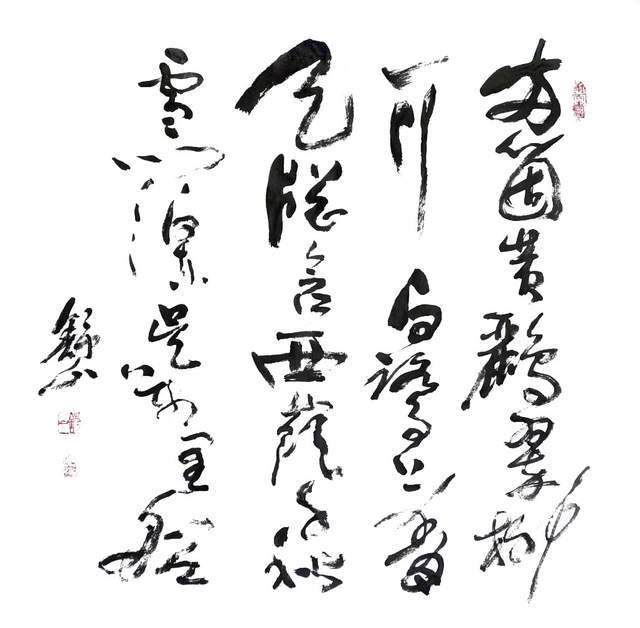 两箇黄鸝翠柳
一行白鹭上青
天窗含西嶺千秋
雪门泊东吴万里船